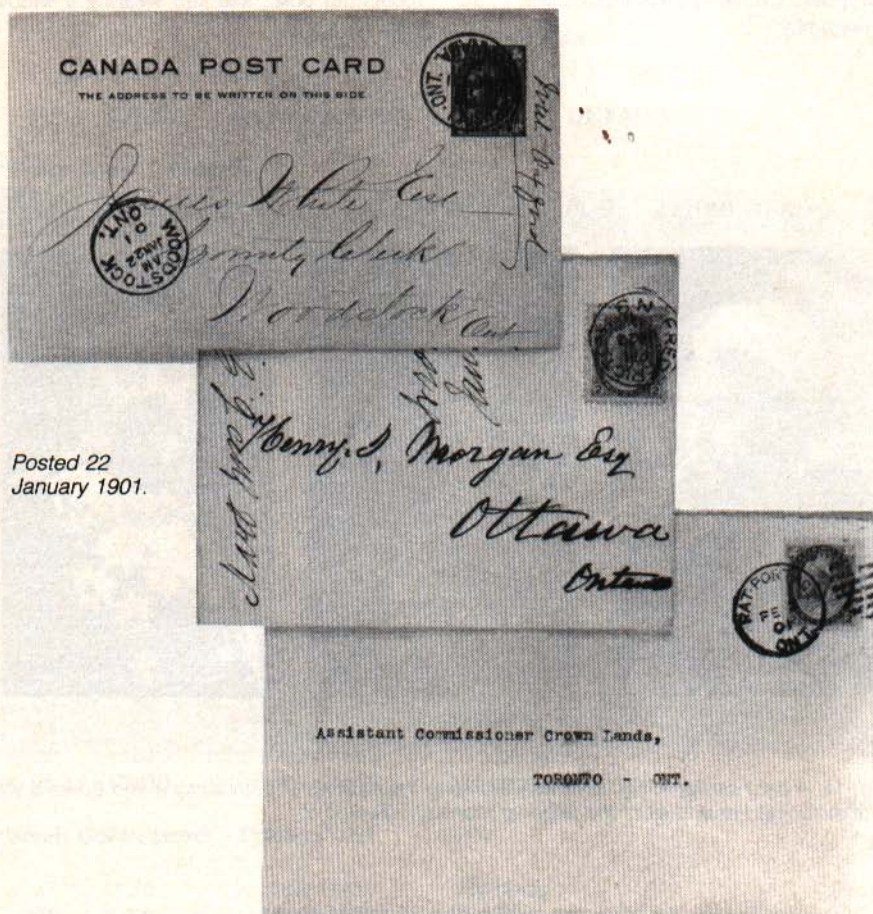 CANADA POST CARD
THE ADDRESS TO BE WRITTEN ON THIS SIDE
James White Esq
County Clerk
Woodstock Ont.
WOODSTOCK ONT.
AM
JAN 22
01
ONT.
Posted 22
January 1901.
Henry. J. Morgan Esq
Ottawa
Ontario
RAT PORT
FE
01
ONT
Assistant Commissioner Crown Lands,
TORONTO - ONT.